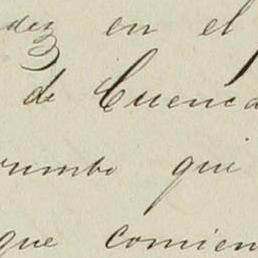 dez en el
de Cuenca
rumbo qui
que comien